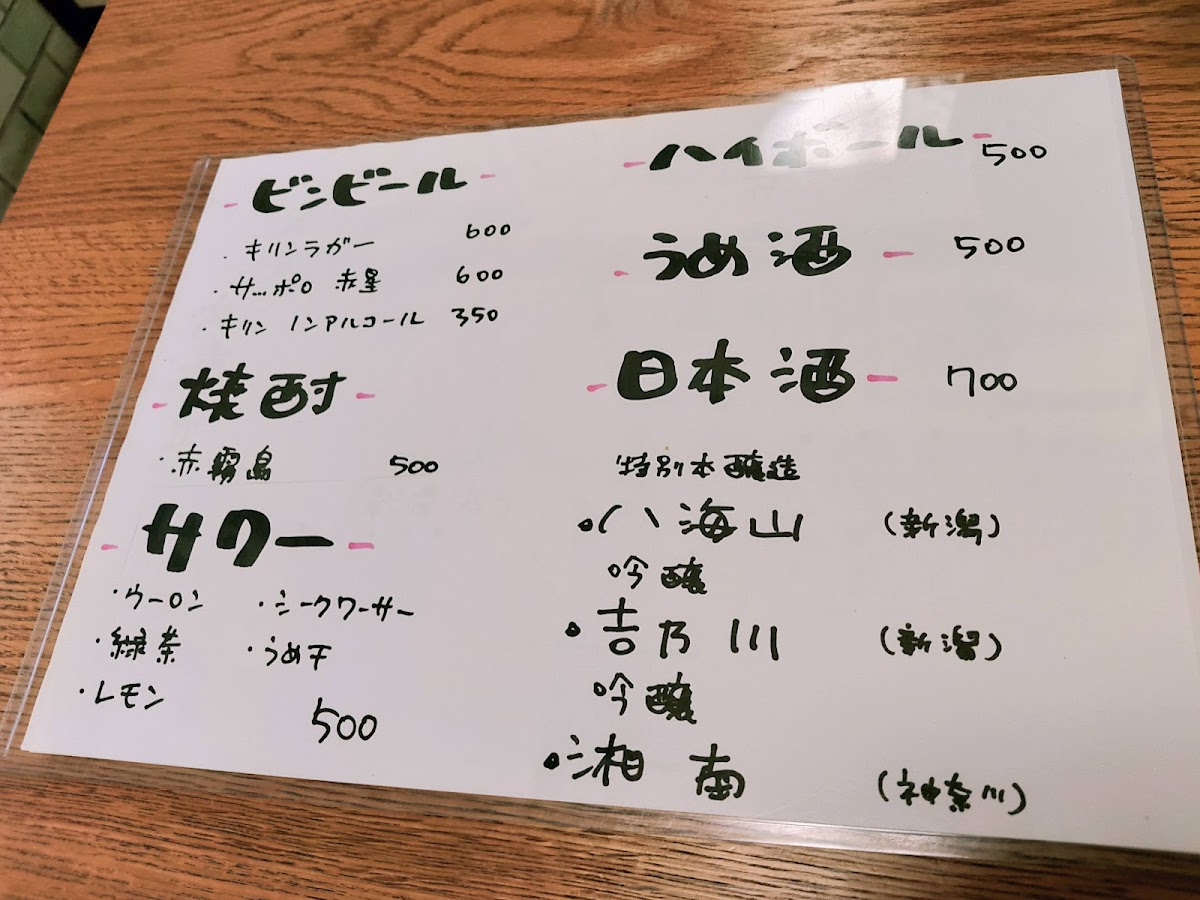 ビンビール
・キリンラガー 600
・サッポロ 赤星 600
・キリン ノンアルコール 350
焼酎
・赤霧島 500
サワー
・ウーロン ・シークワーサー
・緑茶 ・うめ干
・レモン
500
ハイボール 500
うめ酒 500
日本酒 700
特別本醸造
・八海山 (新潟)
吟醸
・吉乃川 (新潟)
吟醸
・湘南 (神奈川)